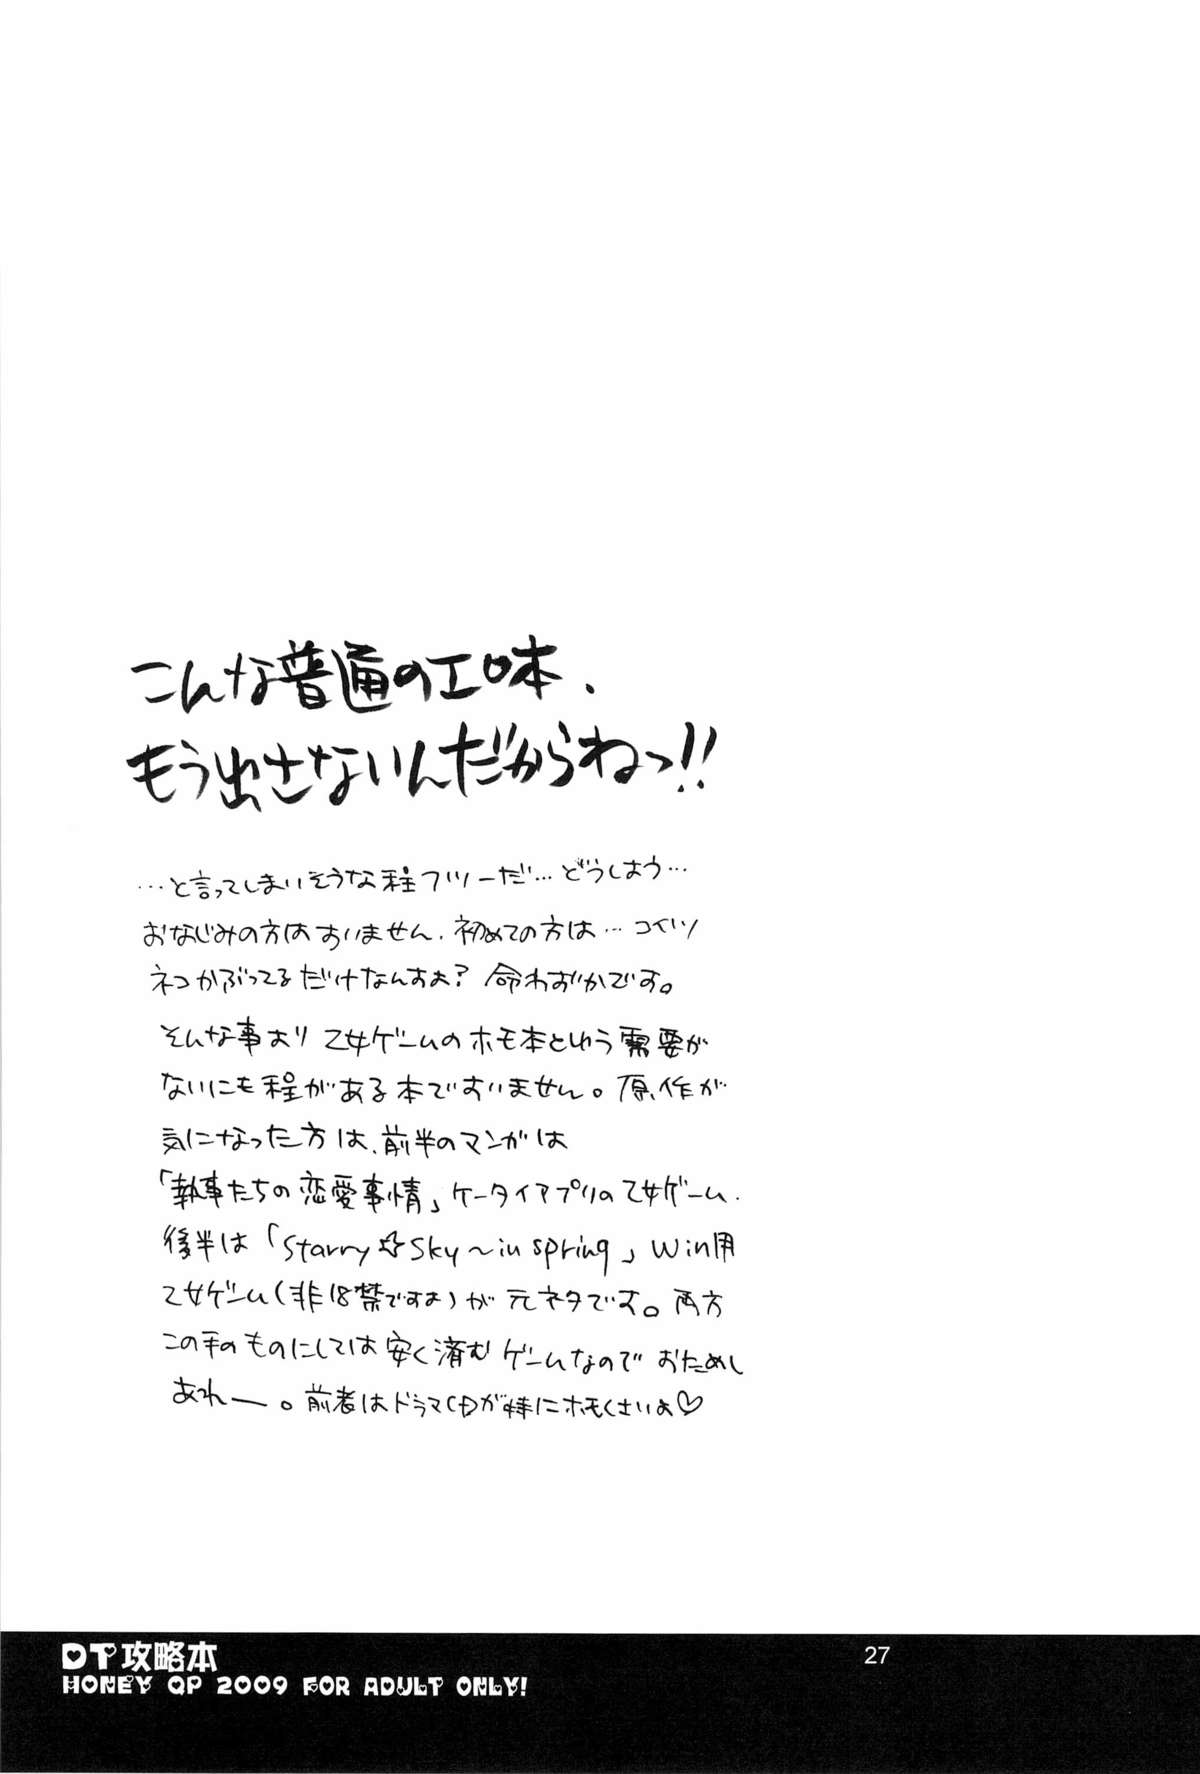 こんな普通のエロ本、
もう出さないんだからねっ!!
…と言ってしまいそうな程フツーだ…どうしよう…
おなじみの方はすいません、初めての方は…コイツ
ネコかぶってるだけなんすよ? 命わずかです。
そんな事より乙女ゲームのホモ本という需要が
ないにも程がある本ですいません。原作が
気になった方は、前半のマンガは
「執事たちの恋愛事情」ケータイアプリの乙女ゲーム、
後半は「Starry☆Sky～in spring」Win用
乙女ゲーム(非18禁ですよ)が元ネタです。両方
この手のものにしては安く済むゲームなのでおためし
あれー。前者はドラマCDが特にホモくさいよ♡
DT攻略本
HONEY QP 2009 FOR ADULT ONLY!
27